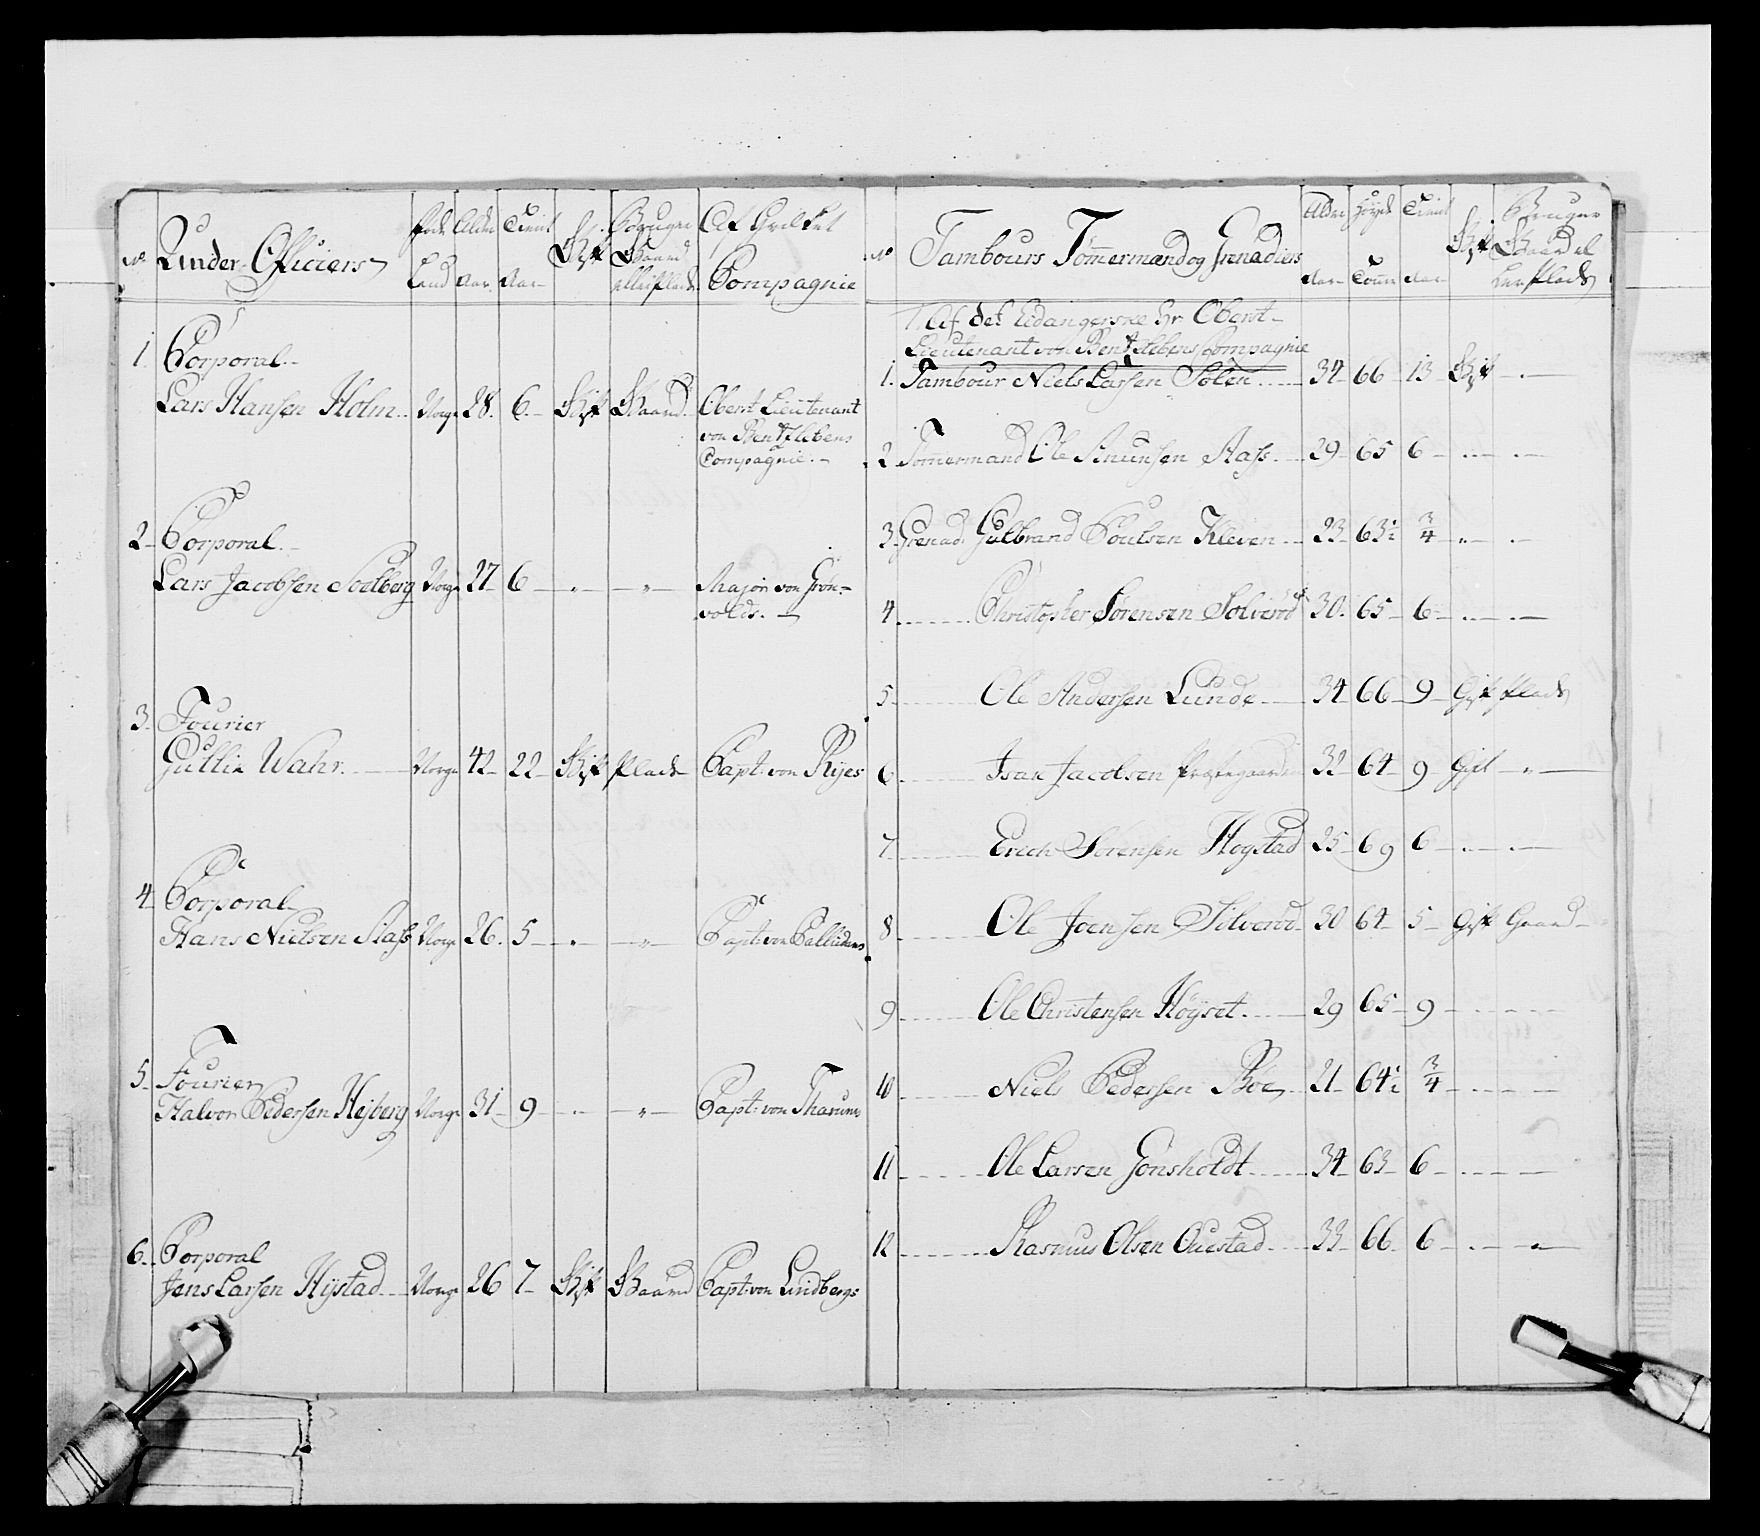 No Under-Officiers Føde Land Alder Aar Tient Aar Gift Bruger Gaard eller Plads Af Hvilket Compagnie
1. Corporal
Lars Hansen Holm Norge 28. 6 Gift Gaard Oberst Lieutenant
von Bentzlebens
Compagnie.
2 Corporal
Lars Jacobsen Norge 27 6 " " Major von Grön-
volds.
3. Fourier
Gullie Wahr. Norge 42 22 Gift Plads Capt: von Ryes
4 Corporal
Hans Nielsen Aass Norge 26. 5 " " Capt: von Calludans
5 Fourier
Halvor Pedersen Hejberg Norge 31 9 " " Capt: von Tharum
6. Corporal
Jens Larsen Hystad Norge 26 7 Gift Gaard Capt: von Lindbergs
No Tambours Tømmermænd og Grenadiers Alder Aar Høyde Tomme Tient Aar Gift Bruger Gaard eller Plads
1. Af det Eidangerske Hr Oberst-
Lieutenant von Bentzlebens Compagnie
1. Tambour Niels Larsen Solen 34 66 13 Gift
2 Tømmermand Ole Knunsen Aass 29 65 6
3 Grenad: Gulbrand Poulsen Kleven 23 63½ ¾ "
4 Christopher Sørensen Solverød 30. 65 6
5 Ole Andersen Lunde 34 66 9 Gift Plads
6 Isak Jacobsen Præstegaarden 32 64 9 Gift "
7 Erich Sørensen Hogstad 25 69 6
8 Ole Joensen Silverød 30 64 5 Gift Gaard
9 Ole Christensen Höyset 29 65 9
10 Niels Pedersen Böe 21 64½ ¾
11 Ole Larsen Gonsholdt 34 63 6
12 Rasmus Olsen Ouestad 33 66 6